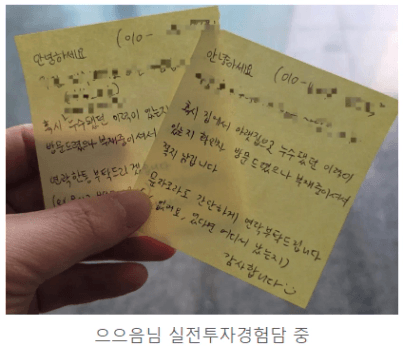 안녕하세요 (010-
혹시 누수됐던 이력이 있는지
방문드렸으나 부재중이셔서
연락한통 부탁드리겠
안녕하세요 (010-
혹시 집에서 아랫집으로 누수됐던 이력이
있는지 확인차 방문드렸으나 부재중이셔서
쪽지 남깁니다
문자로라도 간단하게 연락부탁드립니다
없어요, 있다면 어디서 났는지)
감사합니다
으으음님 실전투자경험담 중